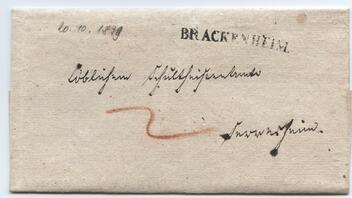 20.10.1829
BRACKENHEIM
Löblichem Schultheißenamte